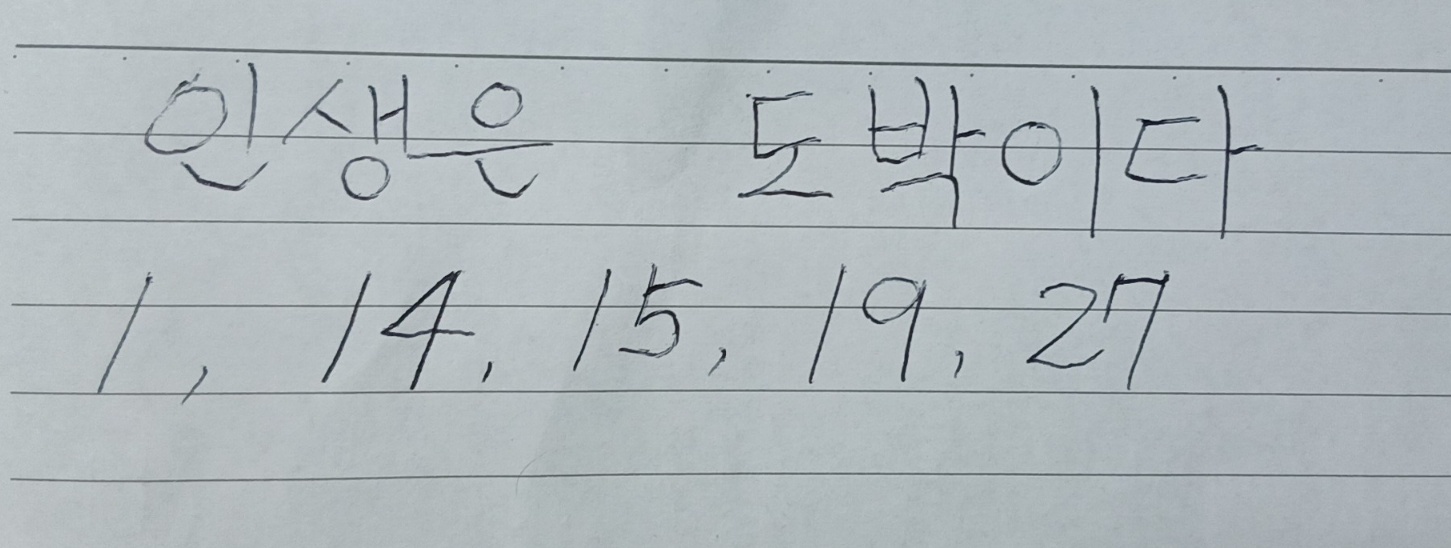 인생은 도박이다
1, 14, 15, 19, 27